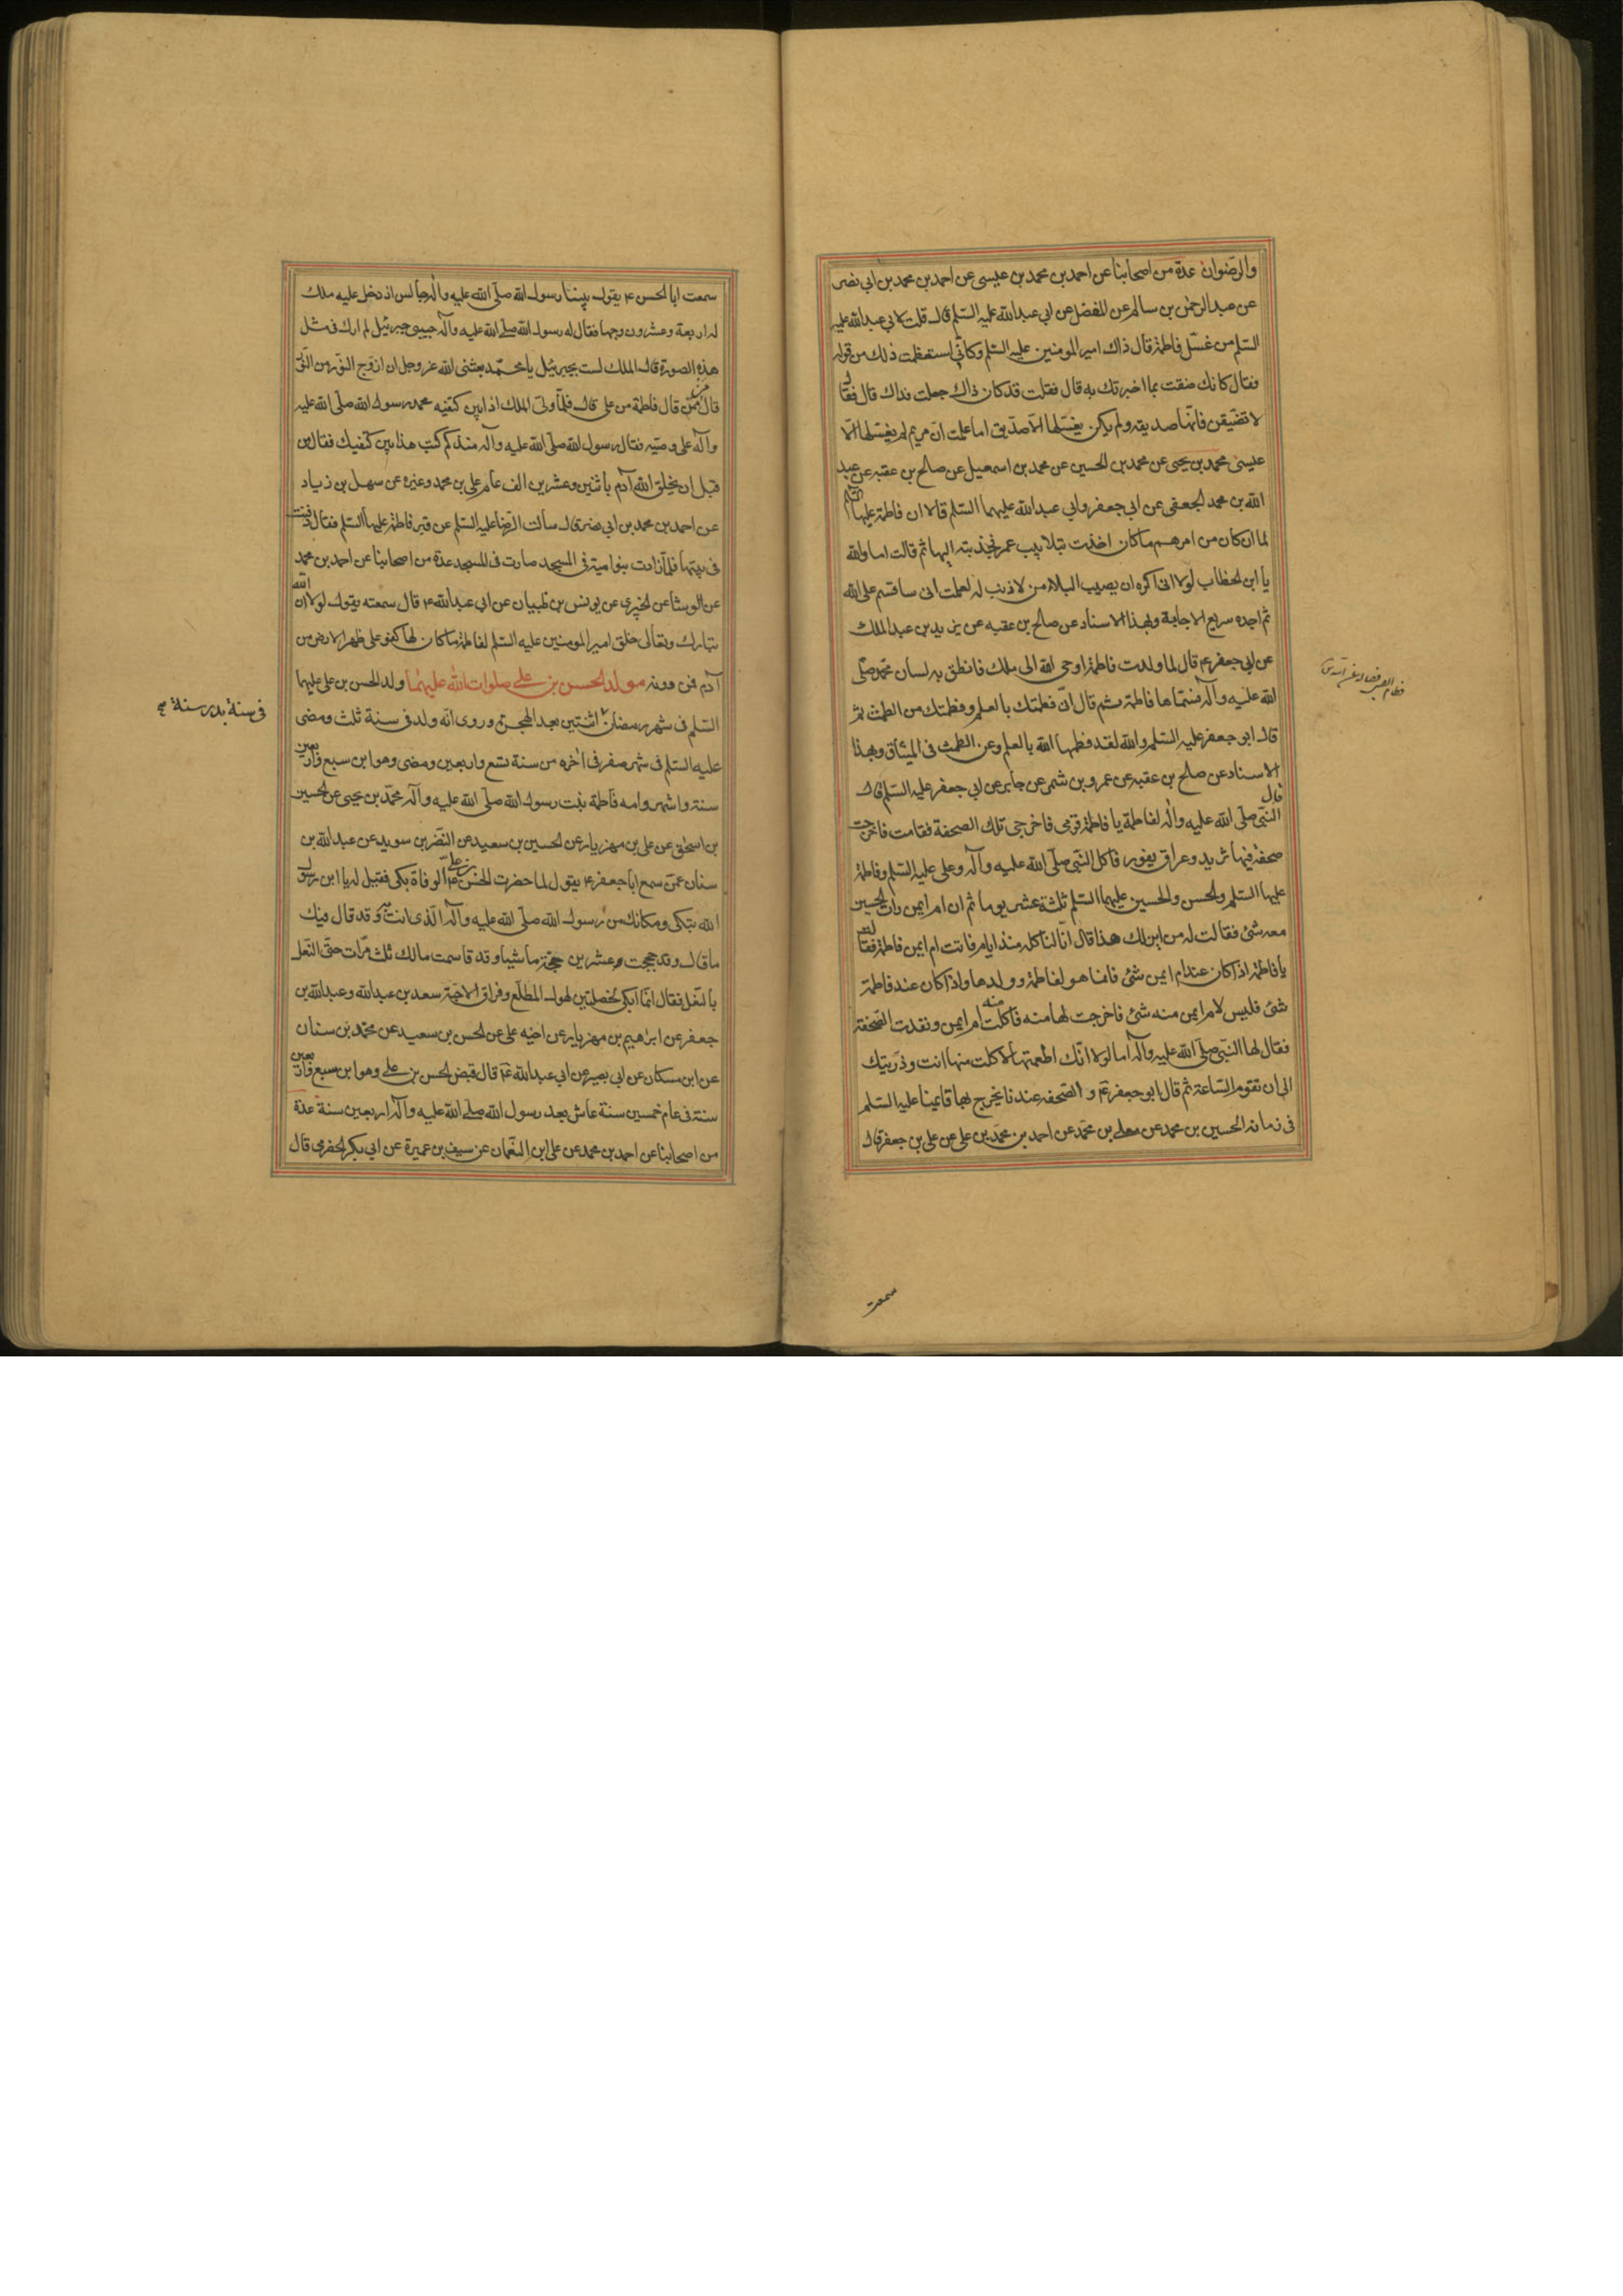 والرضوان عدة من اصحابنا عن احمد بن محمد بن عيسى عن احمد بن محمد بن ابي نصر
عن عبد الرحمن بن سالم عن المفضل عن ابي عبد الله عليه السلم قال قلت لابي عبد الله عليه
السلم من غسل فاطمة قال ذاك امير المومنين عليه السلم وكاني استعظمت ذلك من قوله
فقال كانك ضقت بما اخبرتك به قال فقلت قد كان ذاك جعلت فداك قال فقال
لا تضيقن فانها صديقه ولم يكن يغسلها الا صديق اما علمت ان مريم لم يغسلها الا
عيسى محمد بن يحيى عن محمد بن الحسين عن محمد بن اسمعيل عن صالح بن عقبه عن عبد
الله بن محمد الجعفى عن ابي جعفر وابي عبد الله عليهما السلم قالا ان فاطمة عليها السلم
لما ان كان من امرهم ما كان اخذت بتلابيب عمر فجذبته اليها ثم قالت اما والله
يا ابن الخطاب لولا انى اكره ان يصيب البلاء من لا ذنب له لعلمت انى ساقسم على الله
ثم اجده سريع الاجابة وبهذا الاسناد عن صالح بن عقبه عن يزيد بن عبد الملك
عن ابي جعفر ع قال لما ولدت فاطمة اوحى الله الى ملك فانطق به لسان محمد صلى
الله عليه وآله فسماها فاطمة ثم قال انى فطمتك بالعلم وفطمتك من الطمث ثم
قال ابو جعفر عليه السلم والله لقد فطمها الله بالعلم وعن الطمث فى الميثاق وبهذا
الاسناد عن صالح بن عقبه عن عمرو بن شمر عن جابر عن ابي جعفر عليه السلم قال
قال النبي صلى الله عليه وآله لفاطمة يا فاطمة قومى فاخرجى تلك الصحفة فقامت فاخرجت
صحفة فيها ثريد وعراق يفور فاكل النبي صلى الله عليه وآله وعلى عليه السلم وفاطمة
عليها السلم والحسن والحسين عليهما السلم ثلثة عشر يوما ثم ان ام ايمن رات الحسين
معه شئ فقالت له من اين لك هذا قال انا لناكله منذ ايام فاتت ام ايمن فاطمة فقالت
يا فاطمة اذا كان عند ام ايمن شئ فانما هو لفاطمة وولدها واذا كان عند فاطمة
شئ فليس لام ايمن منه شئ فاخرجت لها منه فاكلت منه ام ايمن ونفدت الصحفة
فقال لها النبي صلى الله عليه وآله اما لولا انك اطعمتها لاكلت منها انت وذريتك
الى ان تقوم الساعة ثم قال ابو جعفر ع والصحفه عندنا يخرج بها قايمنا عليه السلم
فى زمانه الحسين بن محمد عن معلى بن محمد عن احمد بن محمد بن على عن على بن جعفر قال
سمعت
سمعت ابا الحسن ع يقول بينا رسول الله صلى الله عليه وآله جالس اذ دخل عليه ملك
له اربعة وعشرون وجها فقال له رسول الله صلى الله عليه وآله حبيبى جبرئيل لم ارك فى مثل
هذه الصورة قال الملك لست بجبرئيل يا محمد بعثنى الله عز وجل ان ازوج النور من النور
قال من ممن قال فاطمة من على قال فلما ولى الملك اذا بين كتفيه محمد رسول الله صلى الله عليه
وآله على وصيه فقال رسول الله صلى الله عليه وآله منذ كم كتب هذا بين كتفيك فقال من
قبل ان يخلق الله آدم باثنين وعشرين الف عام على بن محمد وغيره عن سهل بن زياد
عن احمد بن محمد بن ابي نصر قال سالت الرضا عليه السلم عن قبر فاطمة عليها السلم فقال دفنت
فى بيتها فلما زادت بنو امية فى المسجد صارت فى المسجد عدة من اصحابنا عن احمد بن محمد
عن الوشا عن الخيبرى عن يونس بن ظبيان عن ابي عبد الله ع قال سمعته يقول لولا ان الله
تبارك وتعالى خلق امير المومنين عليه السلم لفاطمة ما كان لها كفو على ظهر الارض من
آدم فمن دونه مولد الحسن بن على صلوات الله عليهما ولد الحسن بن على عليهما
السلم فى شهر رمضان اثنتين بعد الهجرة وروى انه ولد فى سنة ثلث ومضى
فى سنة بدر سنة
عليه السلم فى شهر صفر فى اخره من سنة تسع واربعين ومضى وهو ابن سبع واربعين
سنة واشهر وامه فاطمة بنت رسول الله صلى الله عليه وآله محمد بن يحيى عن الحسين
بن اسحق عن على بن مهزيار عن الحسين بن سعيد عن النضر بن سويد عن عبد الله بن
سنان عمن سمع ابا جعفر ع يقول لما حضرت الحسن بن على ع الوفاة بكى فقيل له يا ابن رسول
الله تبكى ومكانك من رسول الله صلى الله عليه وآله الذى انت به وقد قال فيك
ما قال وقد حججت عشرين حجة ماشيا وقد قاسمت مالك ثلث مرات حتى النعل
بالنعل فقال انما ابكى لخصلتين لهول المطلع وفراق الاحبة سعد بن عبد الله وعبد الله بن
جعفر عن ابراهيم بن مهزيار عن اخيه على عن الحسن بن سعيد عن محمد بن سنان
عن ابن مسكان عن ابي بصير عن ابي عبد الله ع قال قبض الحسن بن على وهو ابن سبع واربعين
سنة فى عام خمسين سنة عاش بعد رسول الله صلى الله عليه وآله اربعين سنة عدة
من اصحابنا عن احمد بن محمد عن على ابن النعمان عن سيف بن عميرة عن ابي بكر الحضرمى قال